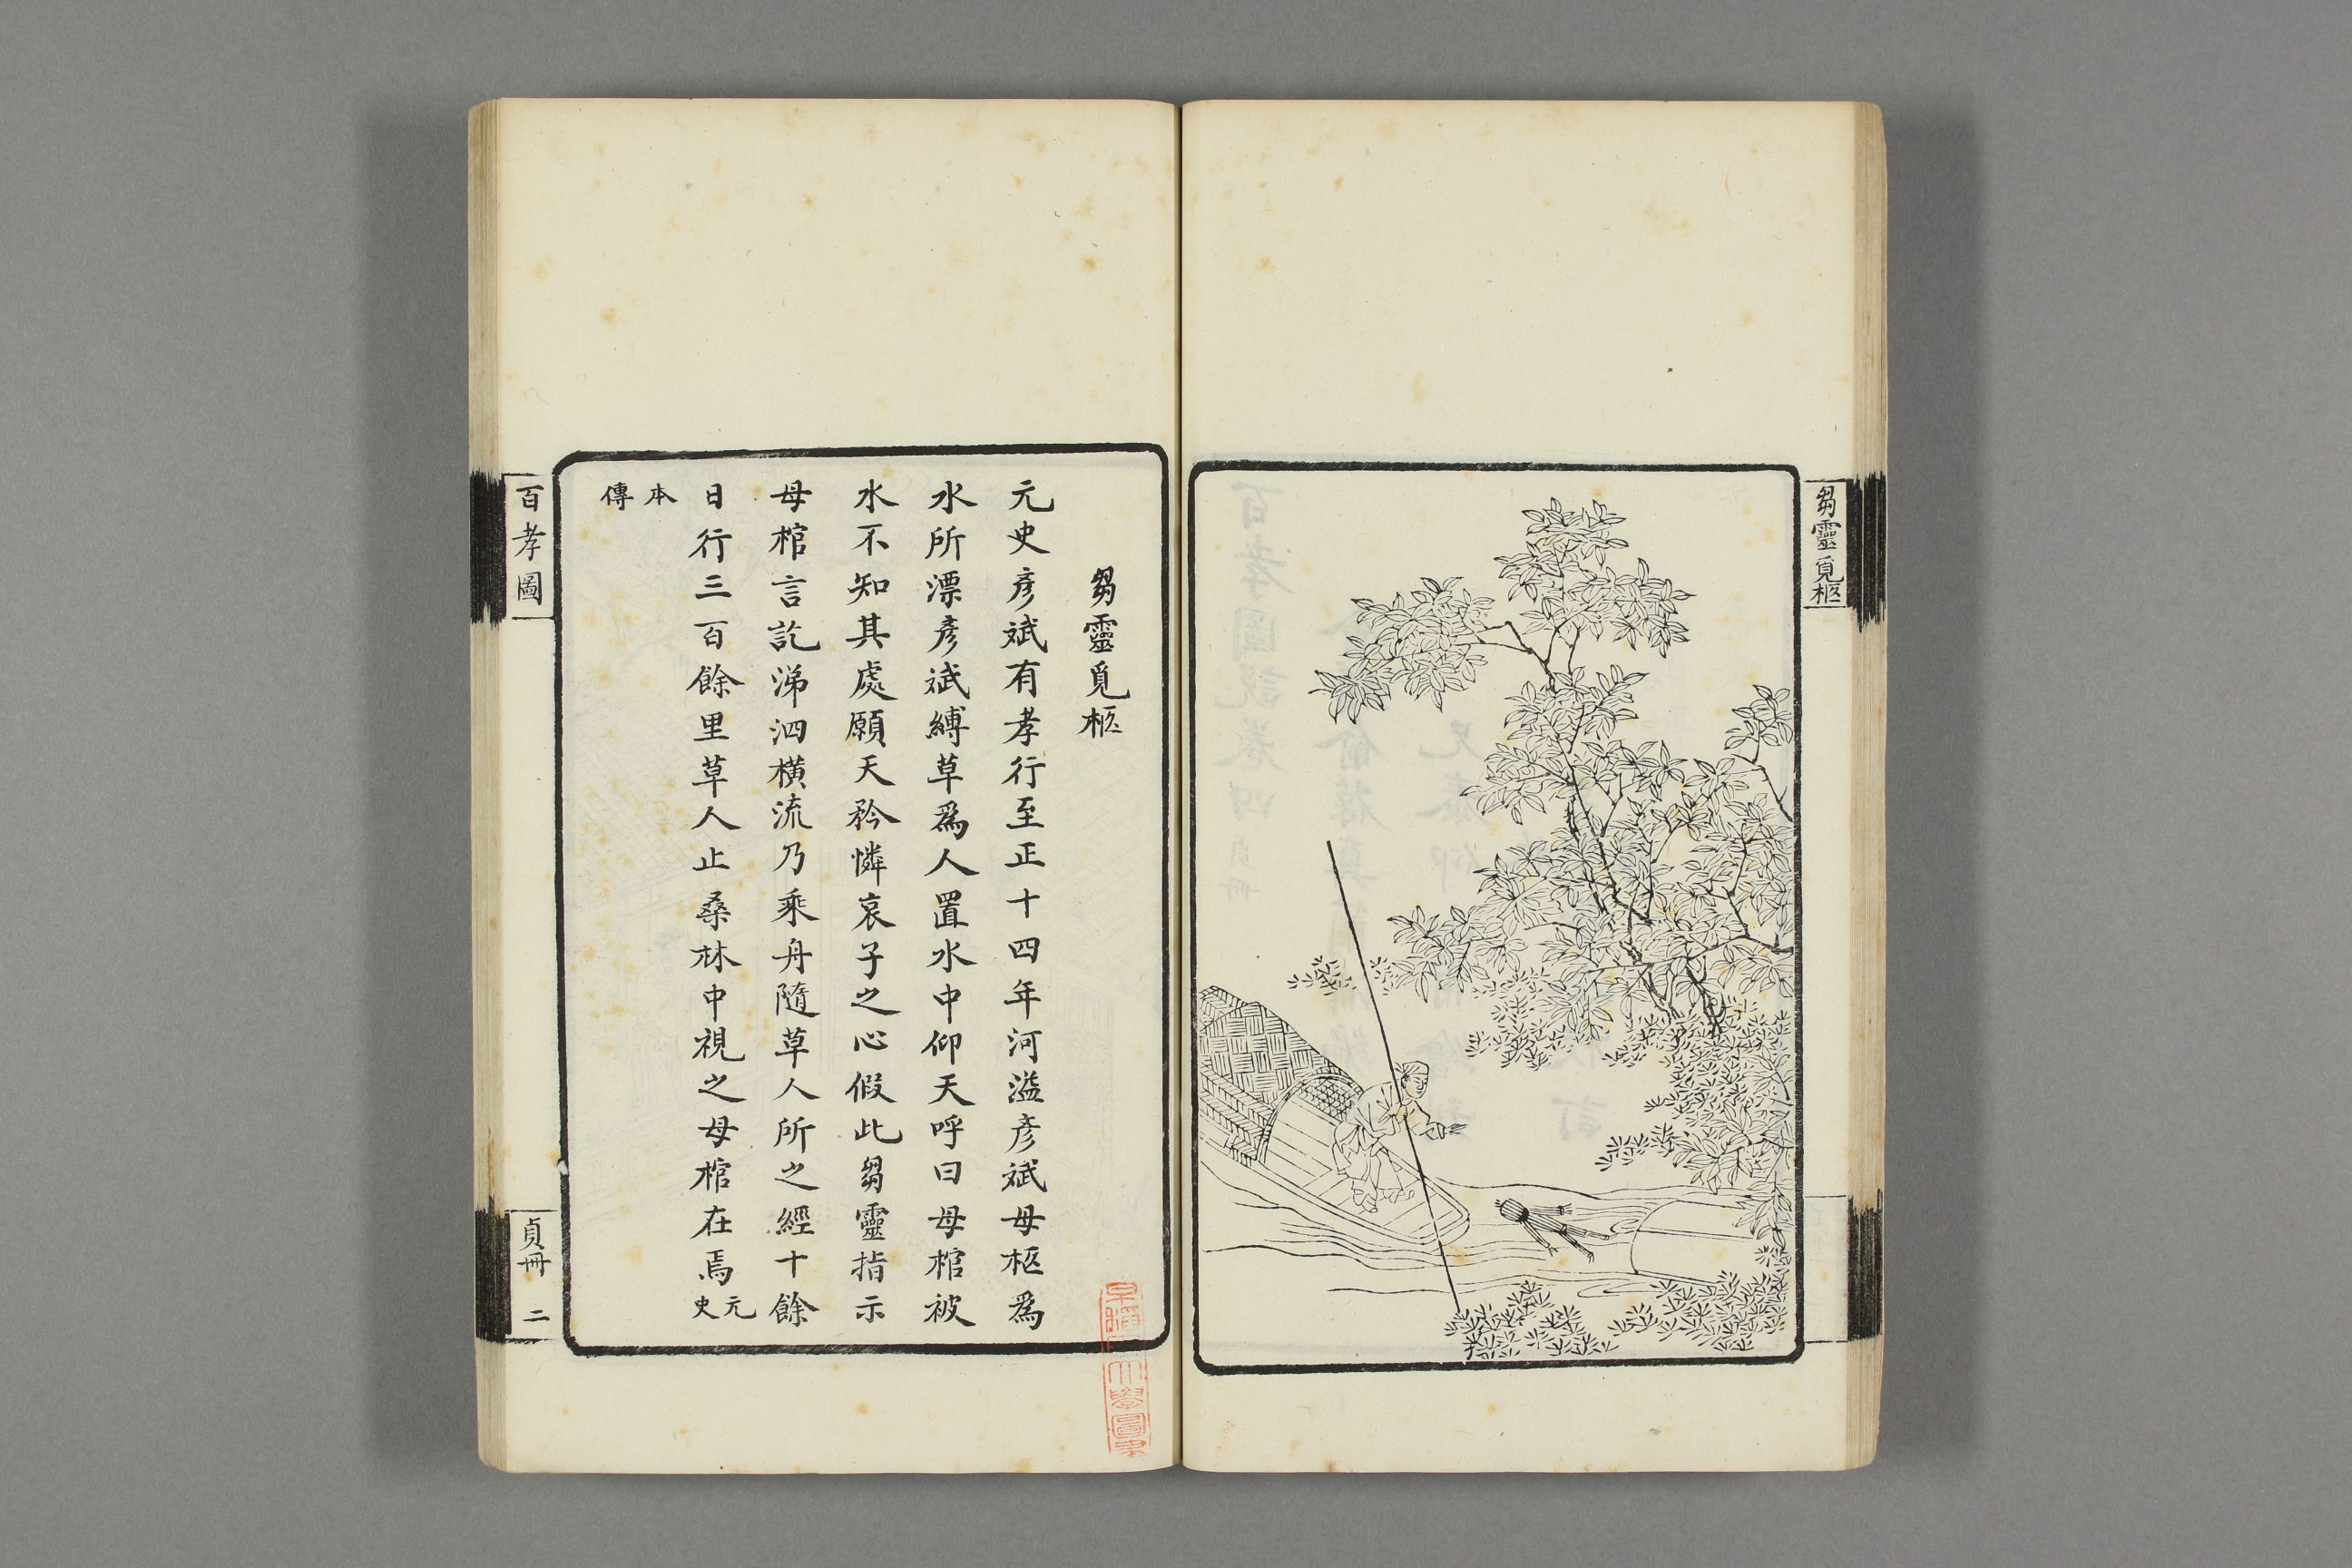 芻靈覓柩
芻靈覓柩
元史彥斌有孝行至正十四年河溢彥斌母柩爲
水所漂彥斌縛草爲人置水中仰天呼曰母棺被
水不知其處願天矜憐哀子之心假此芻靈指示
母棺言訖涕泗橫流乃乘舟隨草人所之經十餘
日行三百餘里草人止桑林中視之母棺在焉元史
本傳
百孝圖
貞冊 二